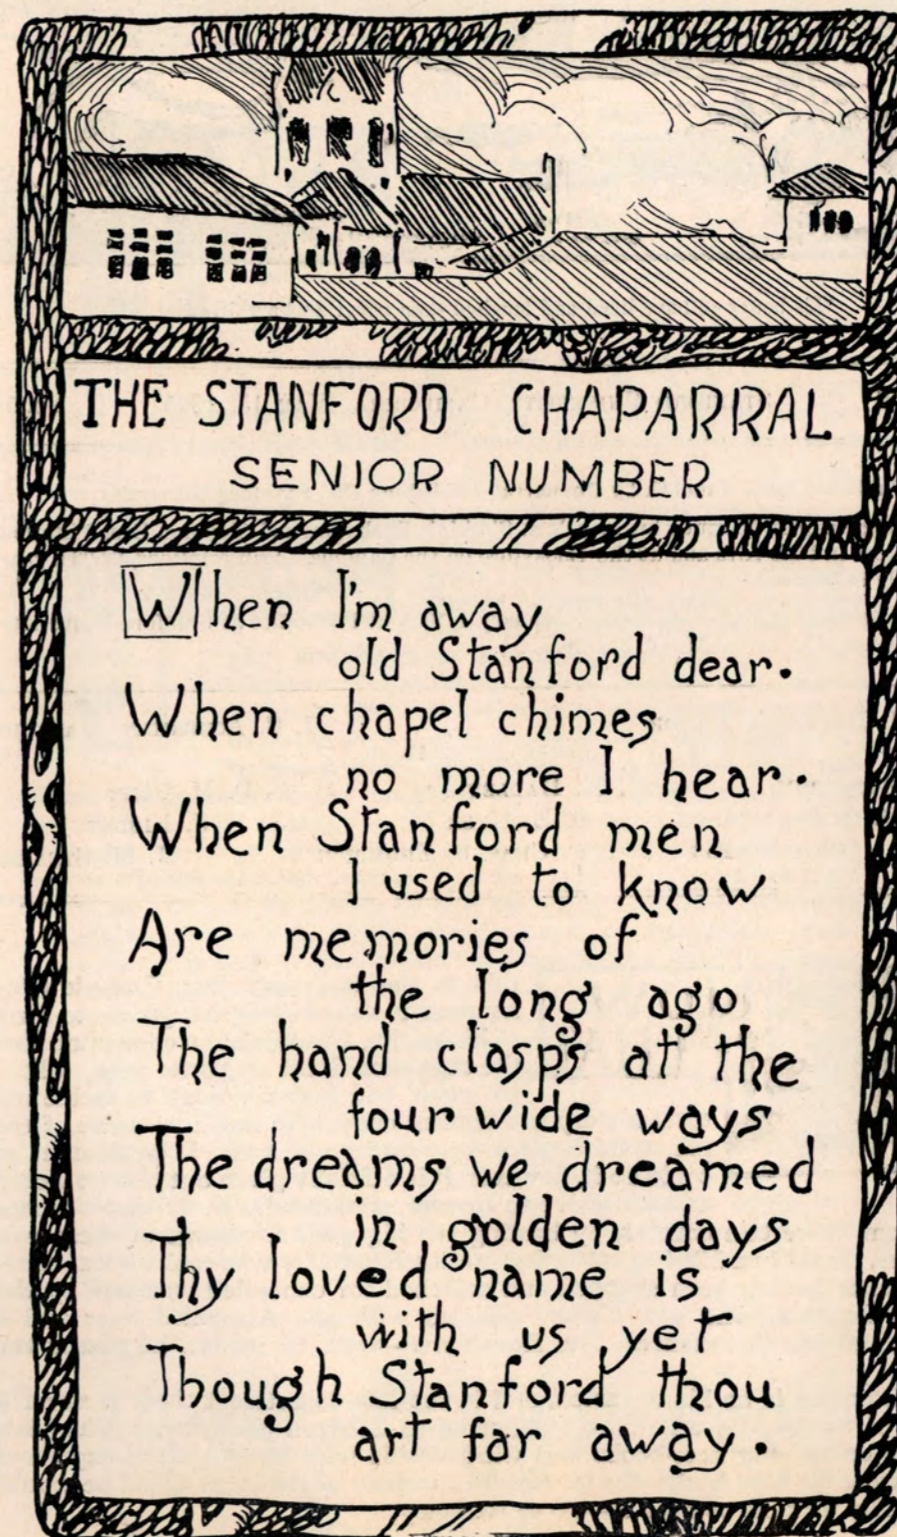 THE STANFORD CHAPARRAL
SENIOR NUMBER
When I'm away
old Stanford dear.
When chapel chimes
no more I hear.
When Stanford men
I used to know
Are memories of
the long ago
The hand clasps at the
four wide ways
The dreams we dreamed
in golden days
Thy loved name is
with us yet
Though Stanford thou
art far away.